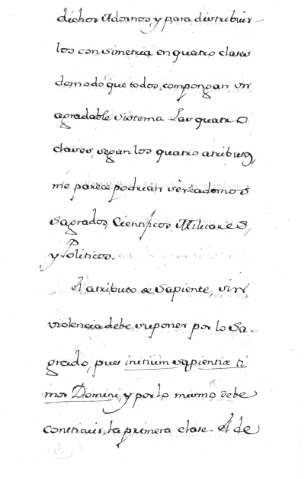 dichos Adornos, y para distribuir-
los con simetria en quatro clases
de modo que todos, compongan un
agradable sistema. Las quatro
clases, segun los quatro atributos,
me parece podrian ser Adornos
Sagrados, Cientificos, Militares,
y Politicos.
Al atributo de Sapiente, sin
violencia debe suponer por lo Sa-
grado, pues initium sapientiæ ti-
mor Domini, y por lo mismo debe
constituir, la primera clase. Al de